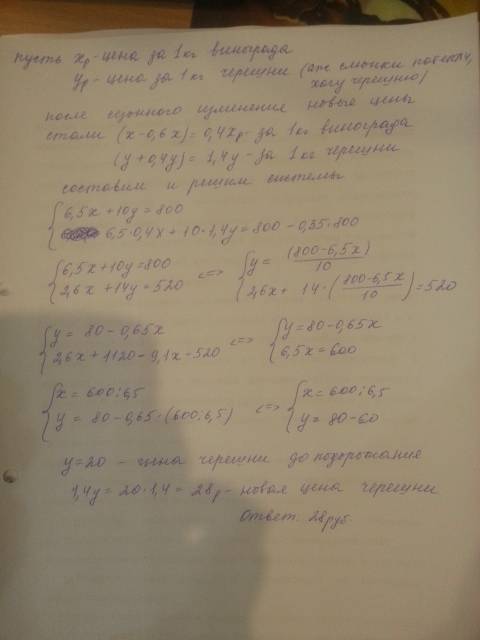 пусть xр - цена за 1 кг винограда
yр - цена за 1 кг черешни (аж слюнки потекли,
хочу черешню)
после сезонного изменения новые цены
стали (x-0,6x)=0,4xр - за 1кг винограда
(y+0,4y)=1,4y - за 1кг черешни
составим и решим системы
{6,5x+10y=800
6,5·0,4x+10·1,4y=800-0,35·800
{6,5x+10y=800 <=> {y= (800-6,5x)/10
2,6x+14y=520 2,6x+ 14·(800-6,5x/10)=520
{y=80-0,65x <=> {y=80-0,65x
2,6x+1120-9,1x=520 6,5x=600
{x=600:6,5 <=> {x=600:6,5
y=80-0,65·(600:6,5) y=80-60
y=20 - цена черешни до подорожания
1,4y=20·1,4=28р - новая цена черешни
Ответ: 28руб.